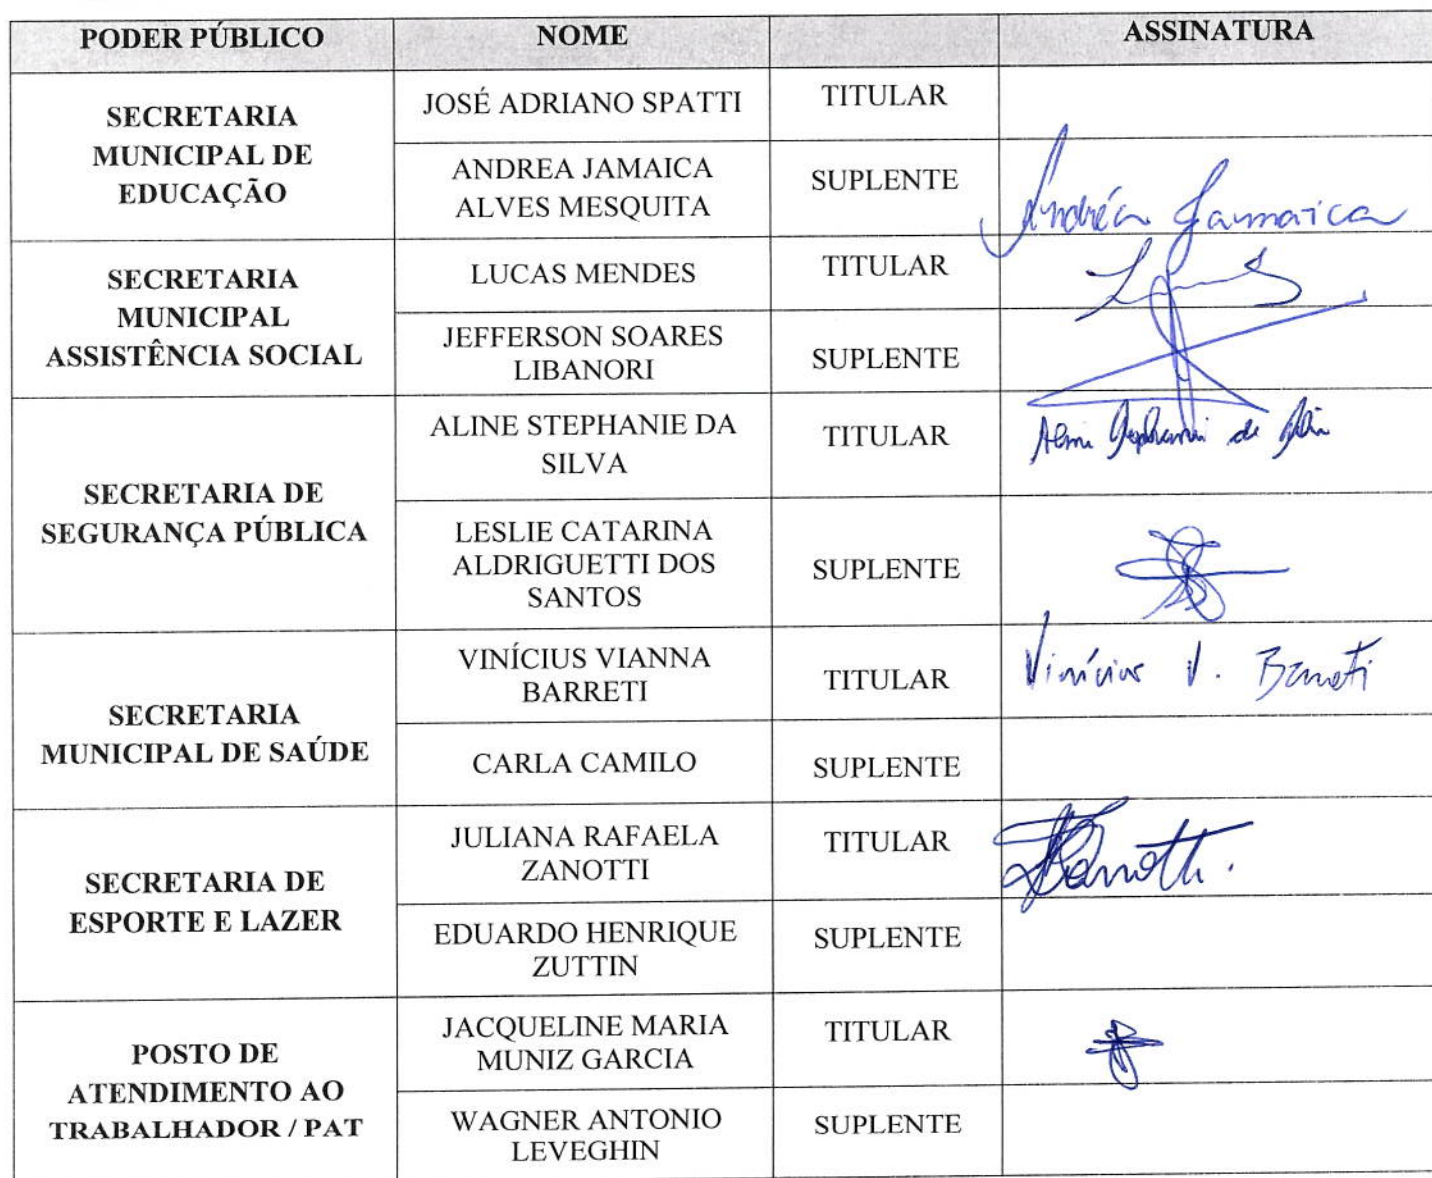 PODER PÚBLICO NOME ASSINATURA
SECRETARIA
MUNICIPAL DE
EDUCAÇÃO
JOSÉ ADRIANO SPATTI TITULAR
ANDREA JAMAICA
ALVES MESQUITA
SUPLENTE
Andréa Jamaica
SECRETARIA
MUNICIPAL
ASSISTÊNCIA SOCIAL
LUCAS MENDES TITULAR
JEFFERSON SOARES
LIBANORI
SUPLENTE
SECRETARIA DE
SEGURANÇA PÚBLICA
ALINE STEPHANIE DA
SILVA
TITULAR
LESLIE CATARINA
ALDRIGUETTI DOS
SANTOS
SUPLENTE
SECRETARIA
MUNICIPAL DE SAÚDE
VINÍCIUS VIANNA
BARRETI
TITULAR
Vinícius V. Barreti
CARLA CAMILO SUPLENTE
SECRETARIA DE
ESPORTE E LAZER
JULIANA RAFAELA
ZANOTTI
TITULAR
EDUARDO HENRIQUE
ZUTTIN
SUPLENTE
POSTO DE
ATENDIMENTO AO
TRABALHADOR / PAT
JACQUELINE MARIA
MUNIZ GARCIA
TITULAR
WAGNER ANTONIO
LEVEGHIN
SUPLENTE